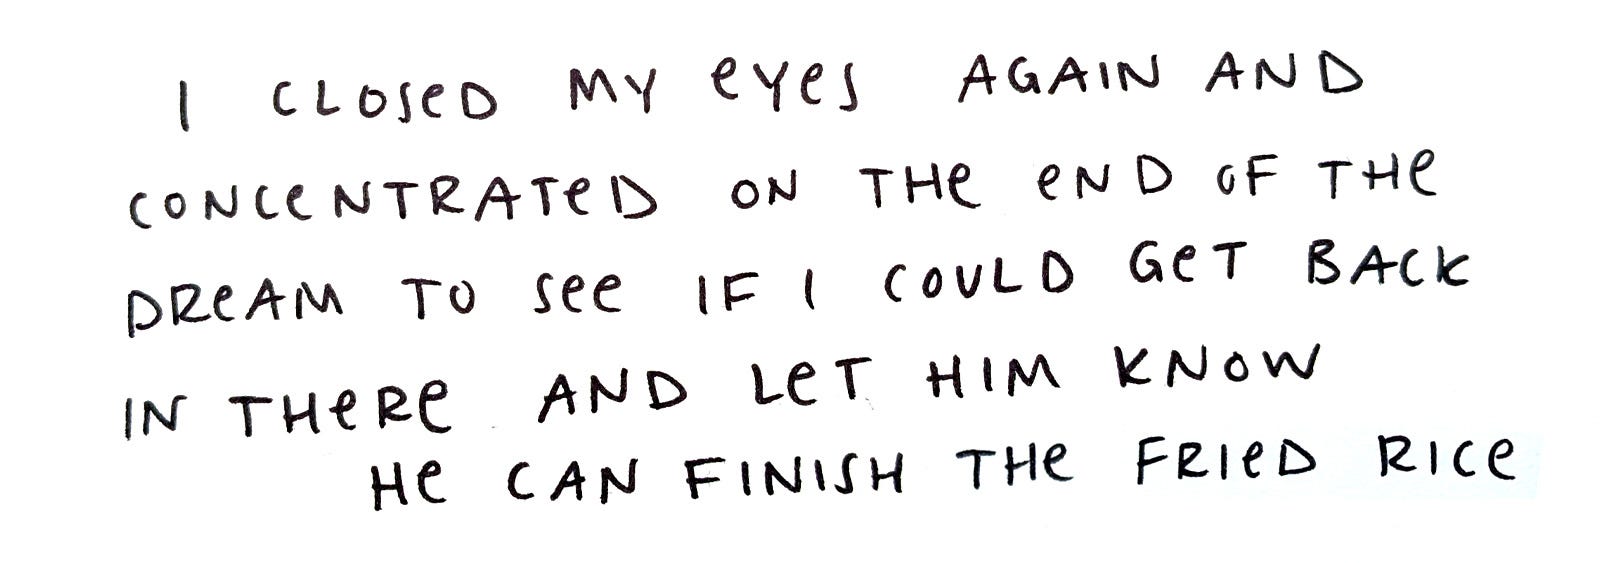 I CLOSeD MY eYeS AGAIN AND
CONCeNTRATeD ON THe eND OF THe
DReAM TO See IF I COULD GeT BACK
IN THeRe AND LeT HIM KNOW
He CAN FINISH THe FRIeD RICe